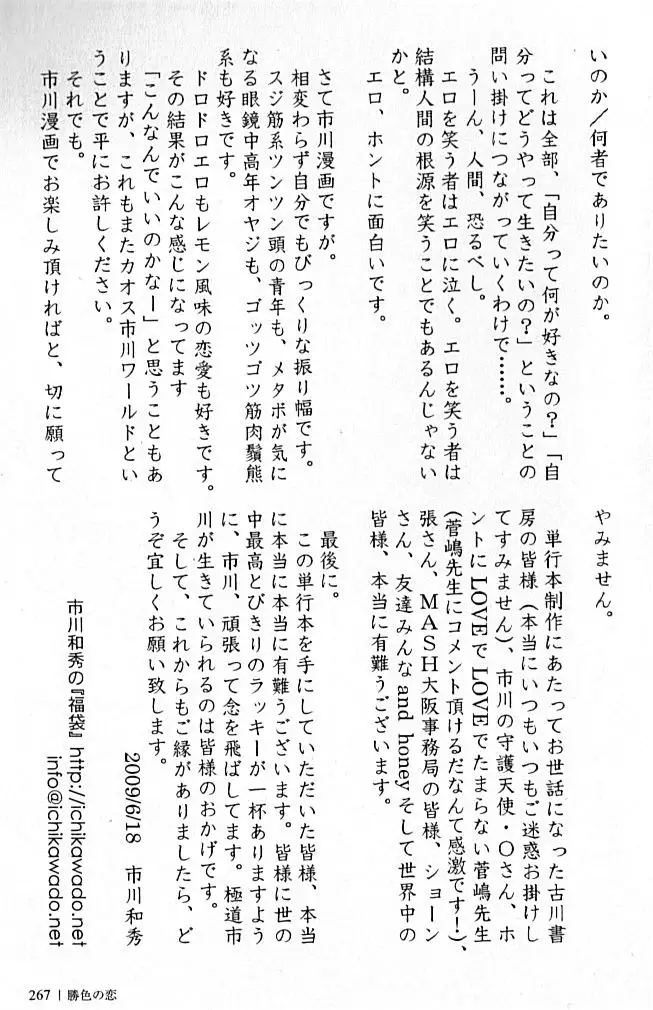 いのか／何者でありたいのか。
これは全部、「自分って何が好きなの？」「自
分ってどうやって生きたいの？」ということの
問い掛けにつながっていくわけで……。
うーん、人間、恐るべし。
エロを笑う者はエロに泣く。エロを笑う者は
結構人間の根源を笑うことでもあるんじゃない
かと。
エロ、ホントに面白いです。
さて市川漫画ですが。
相変わらず自分でもびっくりな振り幅です。
スジ筋系ツンツン頭の青年も、メタボが気に
なる眼鏡中高年オヤジも、ゴッツゴツ筋肉鬚熊
系も好きです。
ドロドロエロもレモン風味の恋愛も好きです。
その結果がこんな感じになってます
「こんなんでいいのかなー」と思うこともあ
りますが、これもまたカオス市川ワールドとい
うことで平にお許しください。
それでも。
市川漫画でお楽しみ頂ければと、切に願って
やみません。
単行本制作にあたってお世話になった古川書
房の皆様（本当にいつもいつもご迷惑お掛けし
てすみません）、市川の守護天使・Oさん、ホ
ントにLOVEでLOVEでたまらない菅嶋先生
（菅嶋先生にコメント頂けるだなんて感激です！）、
張さん、MASH大阪事務局の皆様、ショーン
さん、友達みんなand honeyそして世界中の
皆様、本当に有難うございます。
最後に。
この単行本を手にしていただいた皆様、本当
に本当に本当に有難うございます。皆様に世の
中最高とびきりのラッキーが一杯ありますよう
に、市川、頑張って念を飛ばしてます。極道市
川が生きていられるのは皆様のおかげです。
そして、これからもご縁がありましたら、ど
うぞ宜しくお願い致します。
2009/6/18 市川和秀
市川和秀の『福袋』http://ichikawado.net
info@ichikawado.net
267 | 勝色の恋